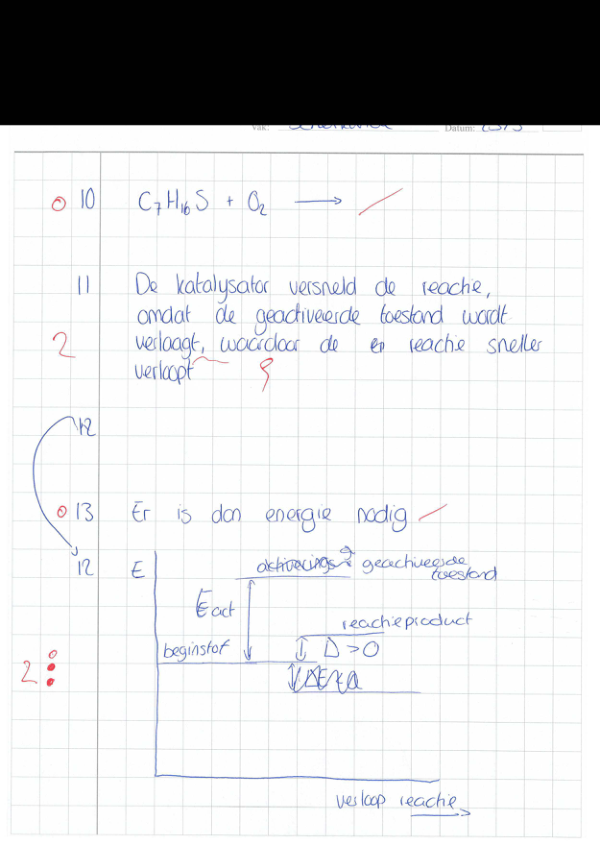 Vak: Datum:
10 C₇H₁₆S + O₂ →
11 De katalysator versneld de reactie,
omdat de geactiveerde toestand wordt
2 verlaagt, waardoor de reactie sneller
verloopt
12
13 Er is dan energie nodig
12 E geactiveerde
toestand
Eact
reactieproduct
beginstof Δ>0
2
verloop reactie